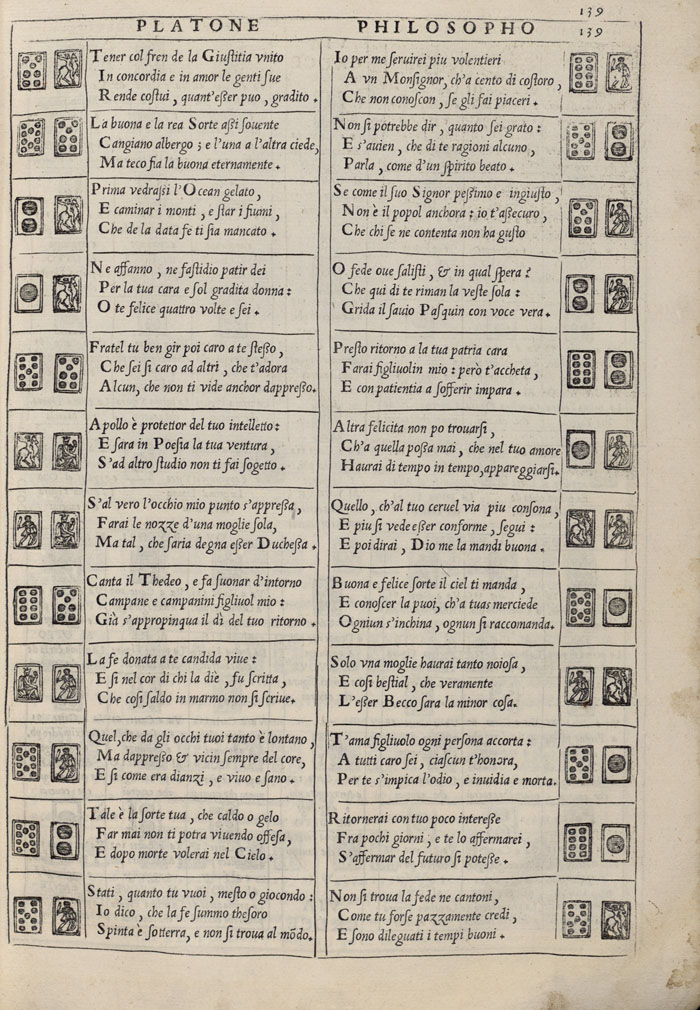 139
PLATONE PHILOSOPHO
139
Tener col fren de la Giustitia vnito
In concordia e in amor le genti sue
Rende costui, quant'esser puo, gradito.
La buona e la rea Sorte assi souente
Cangiano albergo; e l'una a l'altra ciede,
Ma teco fia la buona eternamente.
Prima vedrassi l'Ocean gelato,
E caminar i monti, e star i fiumi,
Che de la data fe ti sia mancato.
Ne affanno, ne fastidio patir dei
Per la tua cara e sol gradita donna:
O te felice quattro volte e sei.
Fratel tu ben gir poi caro a te stesso,
Che sei si caro ad altri, che t'adora
Alcun, che non ti vide anchor dappresso.
Apollo è protettor del tuo intelletto:
E sara in Poesia la tua ventura,
S'ad altro studio non ti fai sogetto.
S'al vero l'occhio mio punto s'appressa,
Farai le nozze d'una moglie sola,
Ma tal, che saria degna esser Duchessa.
Canta il Thedeo, e fa suonar d'intorno
Campane e campanini figliuol mio:
Già s'appropinqua il dì del tuo ritorno.
La fe donata a te candida viue:
E si nel cor di chi la diè, fu scritta,
Che cosi saldo in marmo non si scriue.
Quel, che da gli occhi tuoi tanto è lontano,
Ma dappresso & vicin sempre del core,
E si come era dianzi, e viuo e sano.
Tale è la sorte tua, che caldo o gelo
Far mai non ti potra viuendo offesa,
E dopo morte volerai nel Cielo.
Stati, quanto tu vuoi, mesto o giocondo:
Io dico, che la fe summo thesoro
Spinta è sotterra, e non si troua al mōdo.
Io per me seruirei piu volentieri
A vn Monsignor, ch'a cento di costoro,
Che non conoscon, se gli fai piaceri.
Non si potrebbe dir, quanto sei grato:
E s'auien, che di te ragioni alcuno,
Parla, come d'un spirito beato.
Se come il suo Signor pessimo e ingiusto,
Non è il popol anchora: io t'assecuro,
Che chi se ne contenta non ha gusto
O fede oue salisti, & in qual spera?
Che qui di te riman la veste sola:
Grida il sauio Pasquin con voce vera.
Presto ritorno a la tua patria cara
Farai figliuolin mio: però t'accheta,
E con patientia a sofferir impara.
Altra felicita non po trouarsi,
Ch'a quella possa mai, che nel tuo amore
Haurai di tempo in tempo, appareggiarsi.
Quello, ch'al tuo ceruel via piu consona,
E piu si vede esser conforme, segui:
E poi dirai, Dio me la mandi buona.
Buona e felice sorte il ciel ti manda,
E conoscer la puoi, ch'a tuas merciede
Ogniun s'inchina, ognun si raccomanda.
Solo vna moglie haurai tanto noiosa,
E cosi bestial, che veramente
L'esser Becco sara la minor cosa.
T'ama figliuolo ogni persona accorta:
A tutti caro sei, ciascun t'honora,
Per te s'impica l'odio, e inuidia e morta.
Ritornerai con tuo poco interesse
Fra pochi giorni, e te lo affermarei,
S'affermar del futuro si potesse.
Non si troua la fede ne cantoni,
Come tu forse pazzamente credi,
E sono dileguati i tempi buoni.